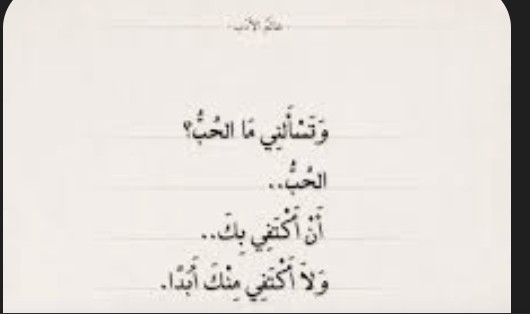 - عالم الأدب -
وَتَسْأَلنِي مَا الحُبُّ؟
الحُبُّ..
أَنْ أَكْتَفِي بِكَ..
وَلاَ أَكْتَفِي مِنْكَ أَبَدًا.